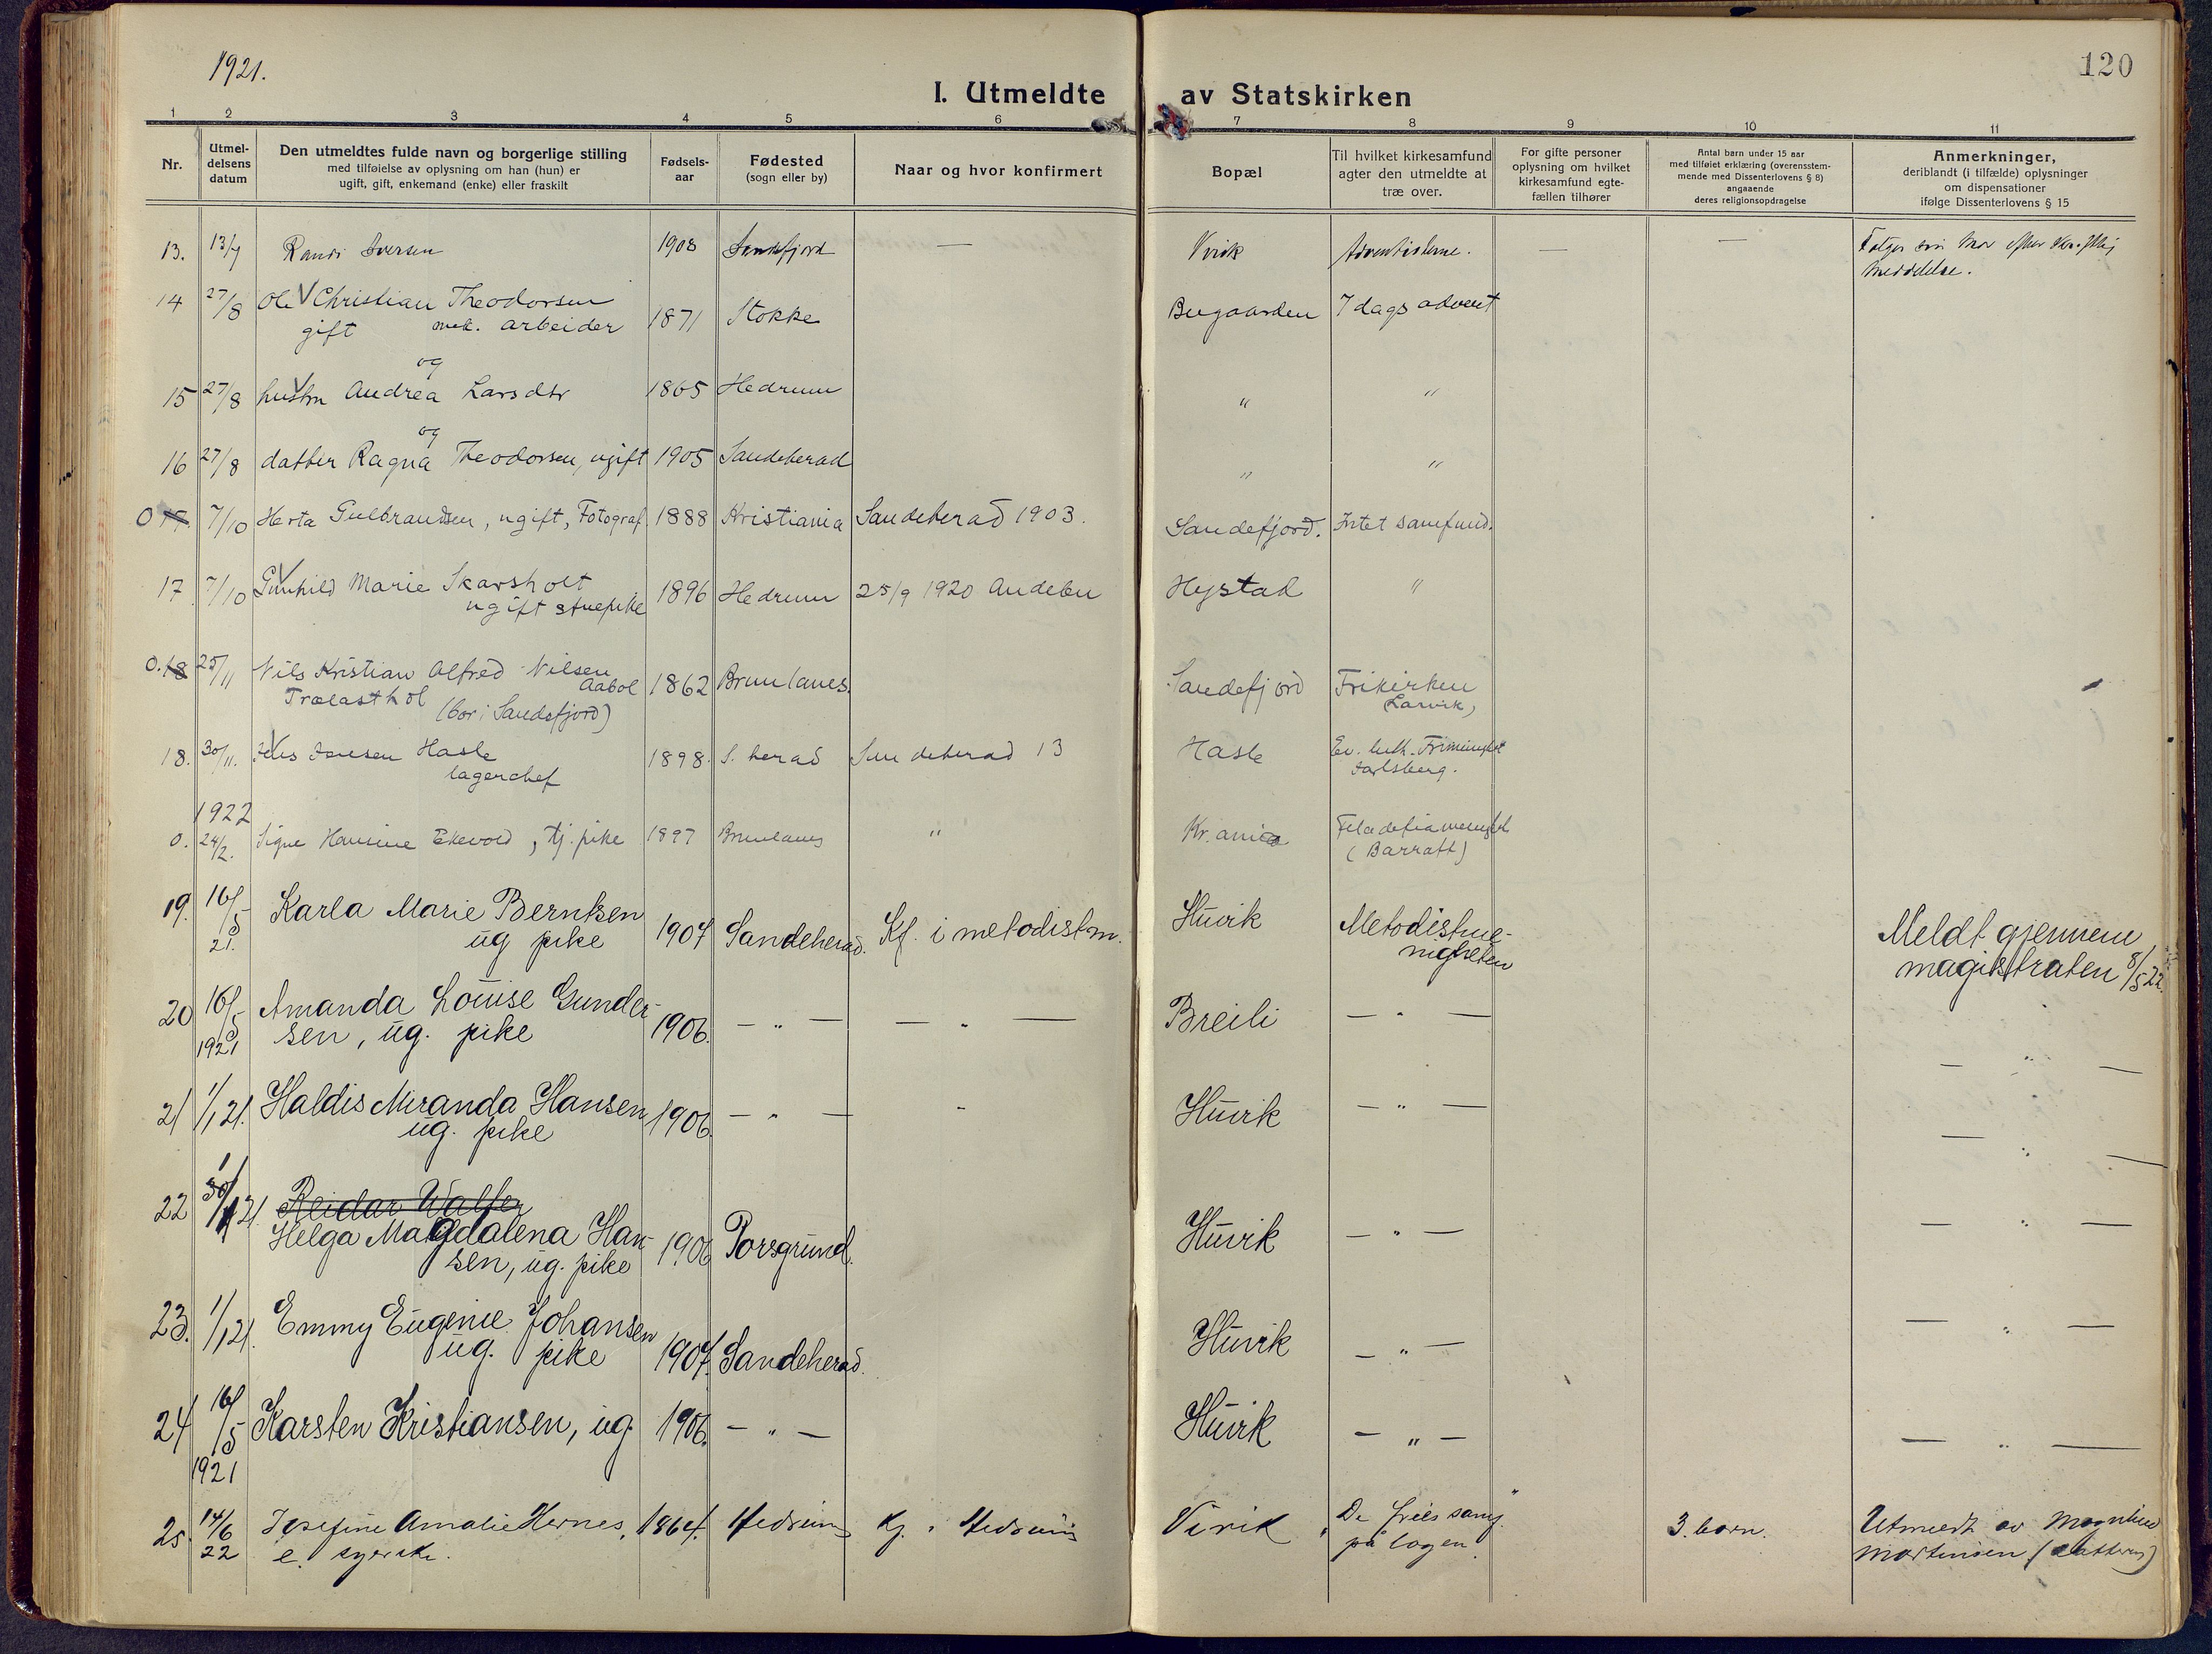 1921.
120
I. Utmeldte av Statskirken
1 2 3 4 5 6 7 8 9 10 11
Nr.
Utmel-
delsens
datum
Den utmeldtes fulde navn og borgerlige stilling
med tilføielse av oplysning om han (hun) er
ugift, gift, enkemand (enke) eller fraskilt
Fødsels-
aar
Fødested
(sogn eller by)
Naar og hvor konfirmert
Bopæl
Til hvilket kirkesamfund
agter den utmeldte at
træ over.
For gifte personer
oplysning om hvilket
kirkesamfund egte-
fællen tilhører
Antal barn under 15 aar
med tilføiet erklæring (overensstem-
mende med Dissenterlovens § 8)
angaaende
deres religionsopdragelse
Anmerkninger,
deriblandt (i tilfælde) oplysninger
om dispensationer
ifølge Dissenterlovens § 15
13. 13/7 Randi Iversen 1908 Sandefjord — Virik Adventisterne. — — Følger sin mor efter
meddelelse.
14 27/8 Ole Christian Theodorsen
gift mek. arbeider 1871 Stokke Bugaarden 7 dags advent
og
15 27/8 hustru Andrea Larsdtr 1865 Hedrum " "
og
16 27/8 datter Ragna Theodorsen, ugift 1905 Sandeherad " "
O 17. 7/10 Herta Gulbrandsen, ugift, Fotograf 1888 Kristiania Sandeherad 1903. Sandefjord. Intet samfund.
17 7/10 Gunhild Marie Skarsholt
ugift stuepike 1896 Hedrum 25/9 1920 Andebu Hystad "
O. 18 25/11 Nils Kristian Alfred Nilsen
Aabol
Trælasth 1862 Brunlanes. Sandefjord Frikirken
(Larvik)
(bor i Sandefjord)
18. 30/11. Jens Jensen Hasle
lagerchef 1898. S.herad Sandeherad 13 Hasle Ev. luth. Frimenighet
Jarlsberg.
1922
O. 24/2. Signe Hansine Ekevold, tj. pike 1897 Brunlanes " Kr.ania Filadelfiamenighet
(Barratt)
19. 16/5 21. Karla Marie Berntsen
ug pike 1907 Sandeherad. Kf. i metodistm. Huvik Metodistme-
nigheten Meldt gjennem
magistraten 8/5 22.
20 16/5 1921 Amanda Louise Gunder-
sen, ug. pike 1906. — " — — " — Breili — " — — " —
21 1/1 21. Haldis Miranda Hansen
ug. pike 1906. — " — " Huvik — " — — " —
22 1/1 21. Reidar Walter
Helga Magdalena Han-
sen, ug. pike 1906 Porsgrund. Huvik — " — — " —
23. 1/1 21. Emmy Eugenie Johansen
ug. pike 1907. Sandeherad. Huvik — " — — " —
24 16/5 1921 Karsten Kristiansen, ug. 1906. — " — Huvik — " — — " —
25. 14/6 22 Josefine Amalie Hernes, 1864. Hedrum Kf. i Hedrum Virik De fries samf.
på lagen. 3. barn. Utmeldt av Magnhild
Mortensen (datteren)
e. syerske.